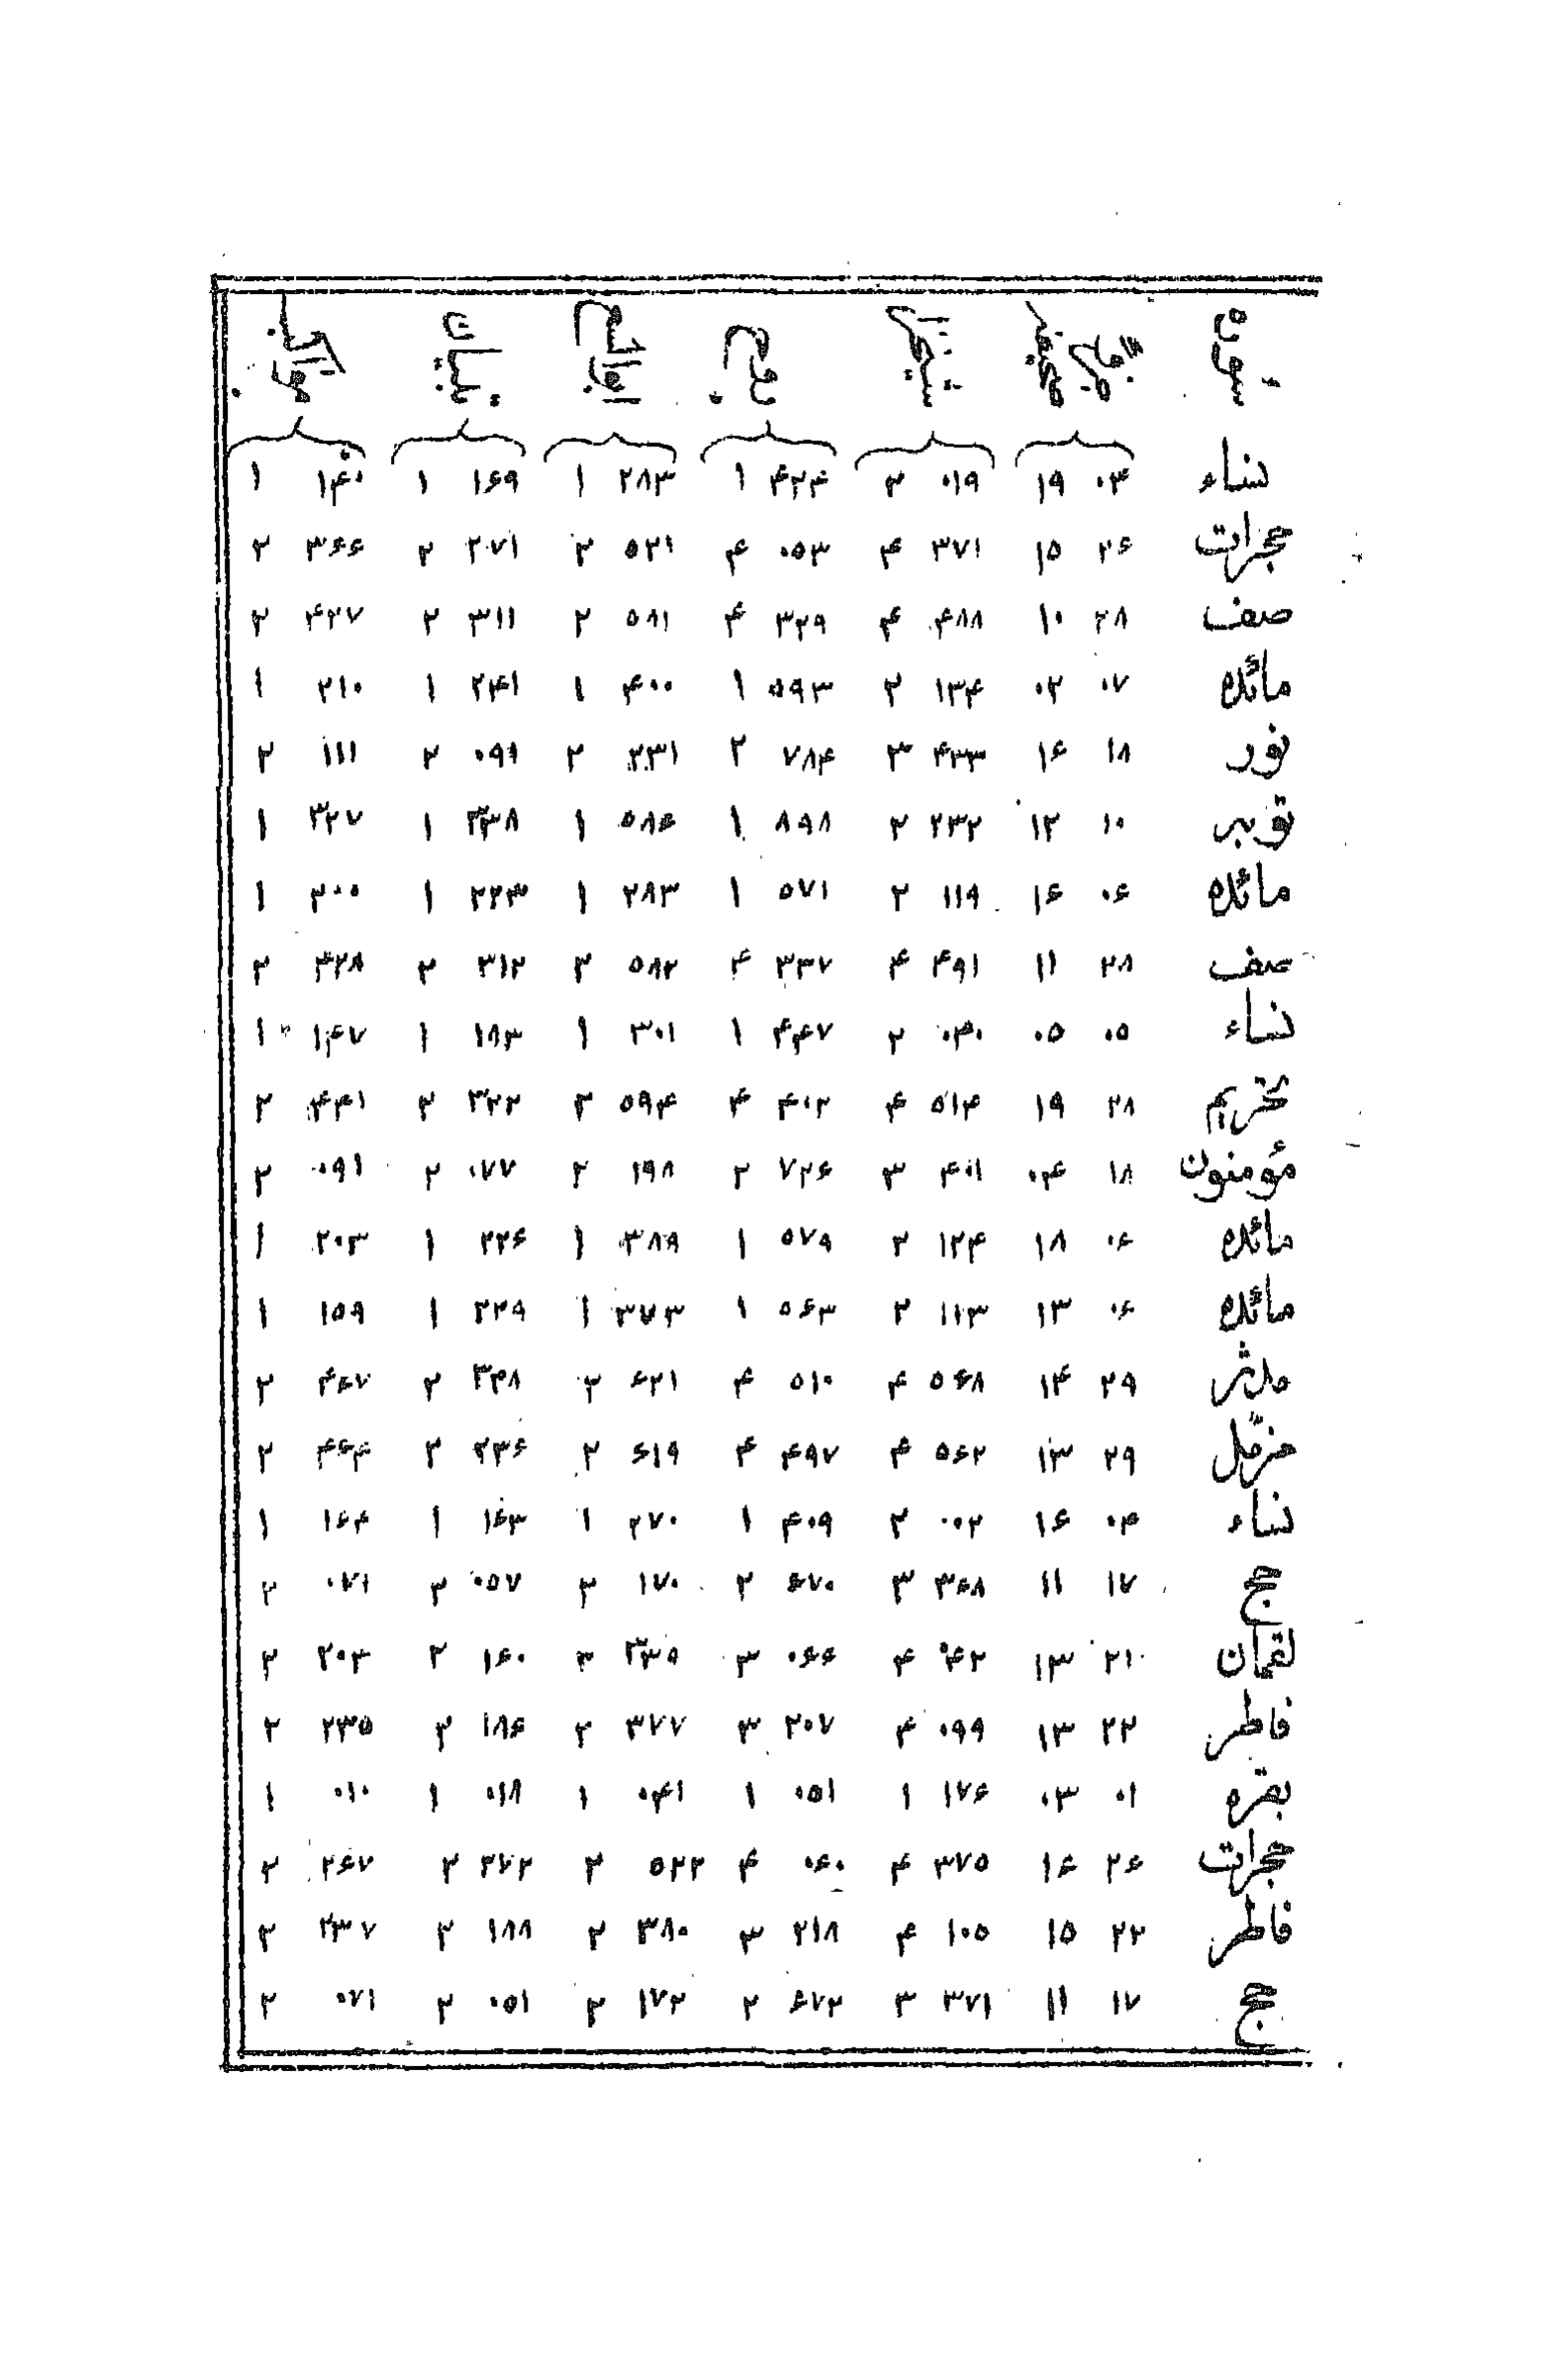 نساء ۰۴ ۱۹ ۰۱۹ ۲ ۴۲۴ ۱ ۲۸۳ ۱ ۱۶۹ ۱ ۱۴۰ ۱
حجرات ۲۶ ۱۵ ۳۷۱ ۴ ۰۵۳ ۴ ۵۲۱ ۲ ۲۷۱ ۲ ۳۶۶ ۲
صف ۲۸ ۱۰ ۴۸۸ ۴ ۳۲۹ ۴ ۵۸۱ ۲ ۳۱۱ ۲ ۴۲۷ ۲
مائده ۰۷ ۰۲ ۱۳۴ ۲ ۵۹۳ ۱ ۴۰۰ ۱ ۲۴۱ ۱ ۲۱۰ ۱
نور ۱۸ ۱۶ ۴۳۳ ۳ ۷۸۴ ۲ ۲۳۱ ۲ ۰۹۹ ۲ ۱۱۱ ۲
توبه ۱۰ ۱۲ ۲۳۲ ۲ ۸۹۸ ۱ ۵۸۶ ۱ ۳۳۸ ۱ ۳۲۷ ۱
مائده ۰۶ ۱۶ ۱۱۹ ۲ ۵۷۱ ۱ ۲۸۳ ۱ ۲۲۳ ۱ ۲۰۰ ۱
صف ۲۸ ۱۱ ۴۹۱ ۴ ۳۳۷ ۴ ۵۸۲ ۲ ۳۱۲ ۲ ۴۲۸ ۲
نساء ۰۵ ۰۵ ۰۴۰ ۲ ۴۴۷ ۱ ۳۰۱ ۱ ۱۸۳ ۱ ۱۴۷ ۱
تحریم ۲۸ ۱۹ ۵۱۴ ۴ ۴۰۲ ۴ ۵۹۴ ۲ ۳۲۲ ۲ ۴۴۱ ۲
مؤمنون ۱۸ ۰۴ ۴۰۱ ۳ ۷۲۶ ۲ ۱۹۸ ۲ ۰۷۷ ۲ ۰۹۱ ۲
مائده ۰۶ ۱۸ ۱۲۴ ۲ ۵۷۹ ۱ ۳۸۹ ۱ ۲۲۶ ۱ ۲۰۳ ۱
مائده ۰۶ ۱۳ ۱۱۳ ۲ ۵۶۳ ۱ ۳۷۳ ۱ ۲۲۹ ۱ ۱۵۹ ۱
مدثر ۲۹ ۱۴ ۵۶۸ ۴ ۵۱۰ ۴ ۶۲۱ ۲ ۳۳۸ ۲ ۴۶۷ ۲
مزّمل ۲۹ ۱۳ ۵۶۲ ۴ ۴۹۷ ۴ ۶۱۹ ۲ ۳۳۶ ۲ ۴۶۴ ۲
نساء ۰۴ ۱۶ ۰۰۲ ۲ ۴۰۹ ۱ ۲۷۰ ۱ ۱۶۳ ۱ ۱۶۴ ۱
حج ۱۷ ۱۱ ۳۶۸ ۳ ۶۷۰ ۲ ۱۷۰ ۲ ۰۵۷ ۲ ۰۷۱ ۲
لقمان ۲۱ ۱۳ ۰۴۲ ۴ ۰۶۶ ۳ ۳۳۵ ۲ ۱۶۰ ۲ ۲۰۳ ۲
فاطر ۲۲ ۱۳ ۰۹۹ ۴ ۲۰۷ ۳ ۳۷۷ ۲ ۱۸۶ ۲ ۲۳۵ ۲
بقره ۰۱ ۰۳ ۱۷۶ ۱ ۰۵۱ ۱ ۰۴۱ ۱ ۰۱۸ ۱ ۰۱۰ ۱
حجرات ۲۶ ۱۶ ۳۷۵ ۴ ۰۶۰ ۴ ۵۲۲ ۲ ۲۷۲ ۲ ۲۶۷ ۲
فاطر ۲۲ ۱۵ ۱۰۵ ۴ ۲۱۸ ۳ ۳۸۰ ۲ ۱۸۸ ۲ ۲۳۷ ۲
حج ۱۷ ۱۱ ۳۷۱ ۳ ۶۷۲ ۲ ۱۷۲ ۲ ۰۵۱ ۲ ۰۷۱ ۲